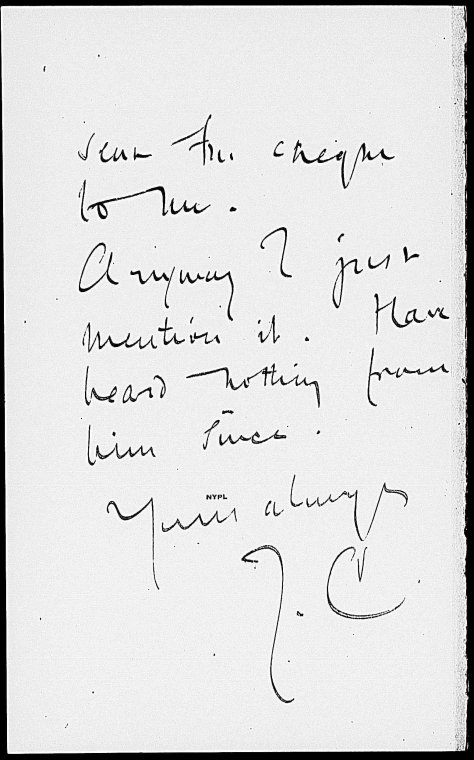 sent the cheque
to me.
Anyway I just
mention it. Have
heard nothing from
him since.
NYPL
Yours always
J. C.